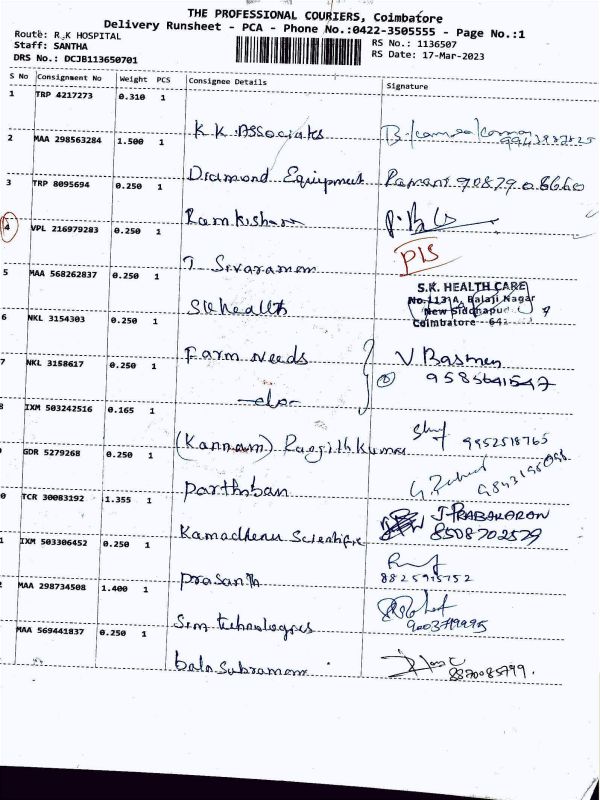 THE PROFESSIONAL COURIERS, Coimbatore
Delivery Runsheet - PCA - Phone No.:0422-3505555 - Page No.:1
Route: R.K HOSPITAL
Staff: SANTHA
DRS No.: DCJB113650701
RS No.: 1136507
RS Date: 17-Mar-2023
S No Consignment No Weight PCS Consignee Details Signature
1 TRP 4217273 0.310 1
K.K. Associates
2 MAA 298563284 1.500 1
Diamond Equipment Ramani 90879 08660
3 TRP 8095694 0.250 1
Ramkishore
4 VPL 216979283 0.250 1
T Sivaramem PIS
5 MAA 568262837 0.250 1
Sk health S.K. HEALTH CARE
No.113 A, Balaji Nagar
New Siddhapur
Coimbatore - 641
6 NKL 3154303 0.250 1
Farm Needs V. Basmen
7 NKL 3158617 0.250 1
-do- 9585641547
8 IXM 503242516 0.165 1
(Kannam) Ranjithkumar 9952518765
GDR 5279268 0.250 1
Parthiban 9843195098
0 TCR 30083192 1.355 1
Kamadhenu Scientific J. PRABAKARAN
8508702579
1 IXM 503306452 0.250 1
Prasanth 8825915752
MAA 298734508 1.400 1
Sim technologies
MAA 569441837 0.250 1
balasubramani 8870085799.